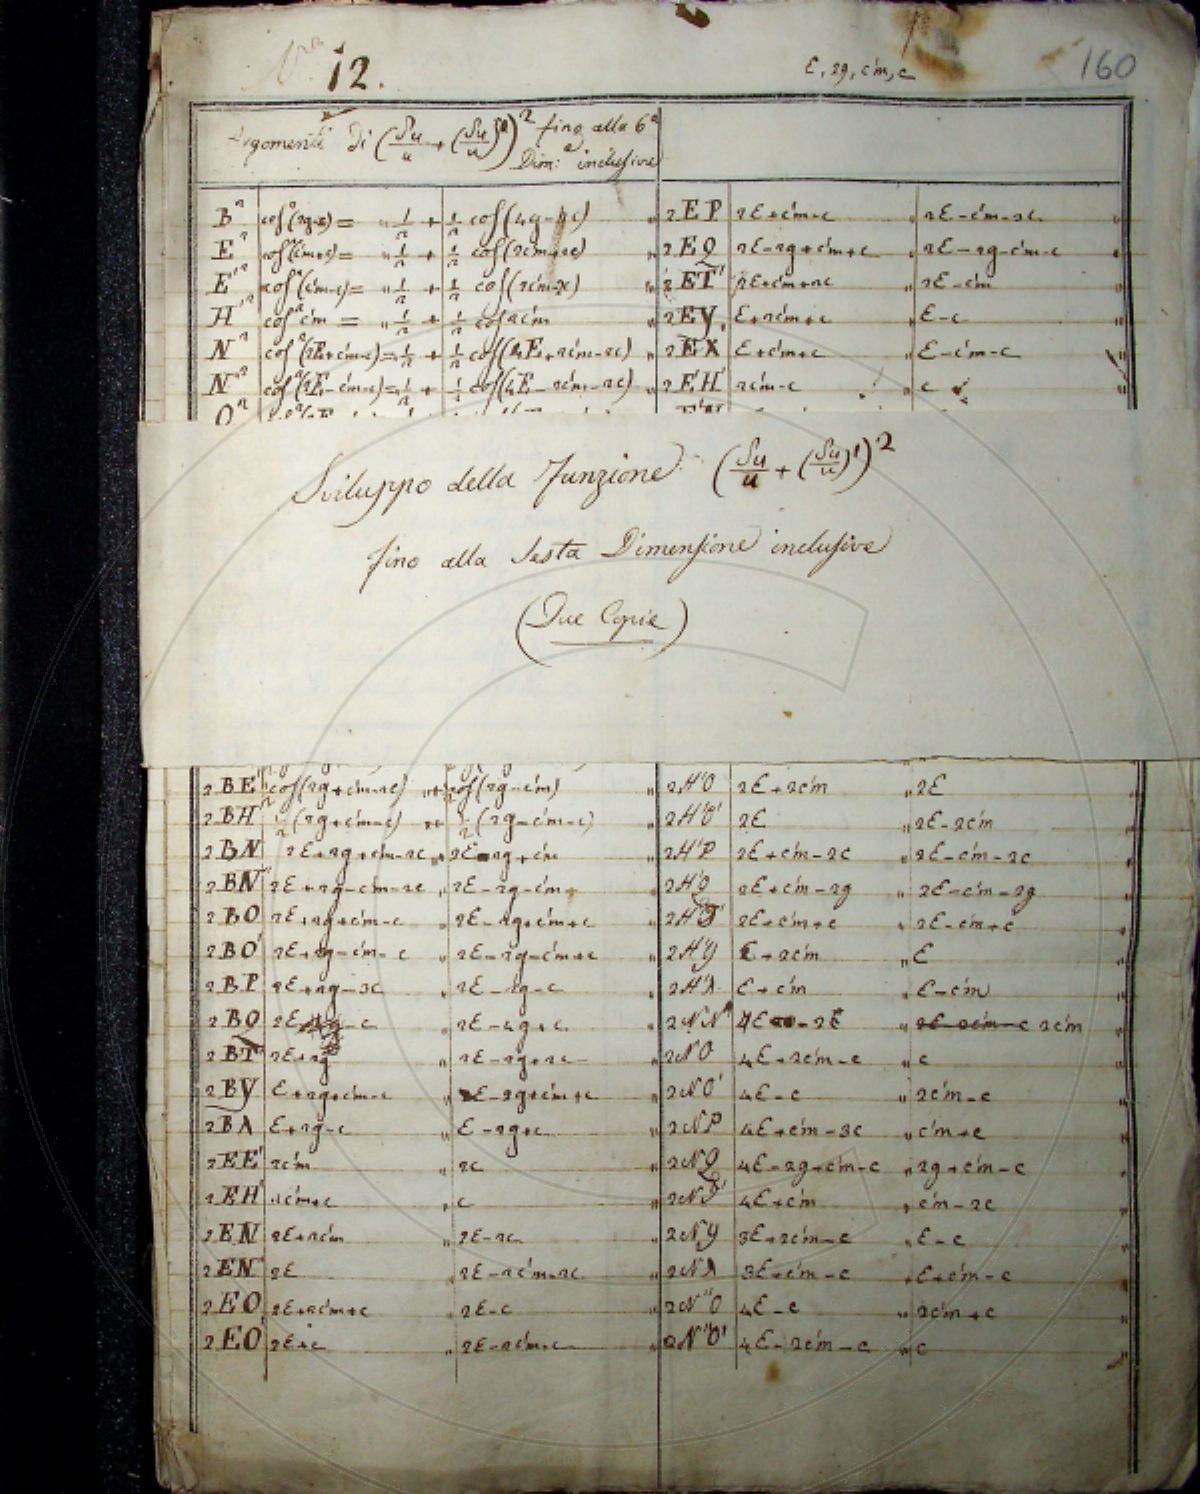 12.
E, 2g, c'm, c
160
Argomenti di (δu/u + (δu/u)¹)² fino alla 6ª
Dim:ᵉ inclusive
B² cos²(2g-c) = " 1/2 + 1/2 cos(4g-2c) " 2EP 2E+c'm-c " 2E-c'm-3c
E² cos²(c'm+c) = " 1/2 + 1/2 cos(2c'm+2c) " 2EQ 2E-2g+c'm+c " 2E-2g-c'm-c
E'² cos²(c'm-c) = " 1/2 + 1/2 cos(2c'm-2c) " 2ET' 2E+c'm+2c " 2E-c'm
H'² cos²c'm = " 1/2 + 1/2 cos 2c'm " 2EY E+2c'm+c " E-c
N² cos²(2E+c'm-c) = 1/2 + 1/2 cos(4E+2c'm-2c) " 2Eλ E+c'm+c E-c'm-c
N'² cos²(2E-c'm-c) = 1/2 + 1/2 cos(4E-2c'm-2c) " 2E'H' 2c'm-c " c
O²
Sviluppo della Funzione (δu/u + (δu/u)¹)²
fino alla Sesta Dimensione inclusive
(Due Copie)
2BE' cos(2g+c'm-2c) "+cos(2g-c'm) " 2H'O 2E+2c'm " 2E
2BH' (2g+c'm-c) "+ (2g-c'm-c) " 2H'O' 2E " 2E-2c'm
2BN 2E+2g+c'm-2c " 2E-2g+c'm " 2H'P 2E+c'm-2c " 2E-c'm-2c
2BN' 2E+2g-c'm-2c " 2E-2g-c'm " 2H'Q 2E+c'm-2g " 2E-c'm-2g
2BO 2E+2g+c'm-c " 2E-2g+c'm+c " 2H'T' 2E+c'm+c " 2E-c'm+c
2BO' 2E+2g-c'm-c " 2E-2g-c'm+c " 2H'Y E+2c'm " E
2BP 2E+2g-3c 2E-2g-c " 2H'λ E+c'm " E-c'm
2BQ 2E-c " 2E-4g+c " 2NN' 4E-2c " 2c'm
2BT' 2E+2g 2E-2g+2c " 2NO 4E+2c'm-c " c
2BY E+2g+c'm-c " E-2g+c'm+c " 2NO' 4E-c " 2c'm-c
2Bλ E+2g-c " E-2g+c " 2NP 4E+c'm-3c " c'm+c
2EE' 2c'm " 2c " 2NQ 4E-2g+c'm-c " 2g+c'm-c
2EH' 2c'm+c " c " 2NT' 4E+c'm " c'm-2c
2EN 2E+2c'm " 2E-2c " 2NY 3E+2c'm-c " E-c
2EN' 2E " 2E-2c'm-2c " 2Nλ 3E+c'm-c " E+c'm-c
2EO 2E+2c'm+c " 2E-c " 2N'O 4E-c " 2c'm+c
2EO' 2E+c " 2E-2c'm-c " 2N'O' 4E-2c'm-c " c